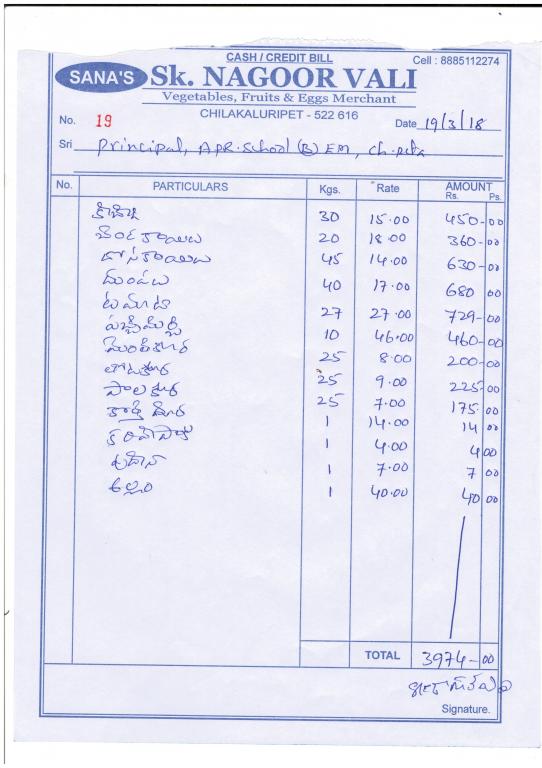 CASH / CREDIT BILL
Cell : 8885112274
SANA'S Sk. NAGOOR VALI
Vegetables, Fruits & Eggs Merchant
CHILAKALURIPET - 522 616
No. 19 Date 19/3/18
Sri Principal, A.P.R. School (B) EM,
No. PARTICULARS Kgs. Rate AMOUNT
Rs. Ps.
క్యాబేజి 30 15.00 450-00
బెండకాయలు 20 18.00 360-00
దోసకాయలు 45 14.00 630-00
దుంపలు 40 17.00 680 00
టమాటా 27 27.00 729-00
పచ్చిమిర్చి 10 46.00 460-00
మెంతికూర 25 8.00 200-00
తోటకూర 25 9.00 225-00
పాలకూర 25 7.00 175 00
కొత్తిమీర 1 14.00 14 00
కరివేపాకు 1 4.00 4 00
పుదీన 1 7.00 7 00
అల్లం 1 40.00 40 00
TOTAL 3974-00
Signature.